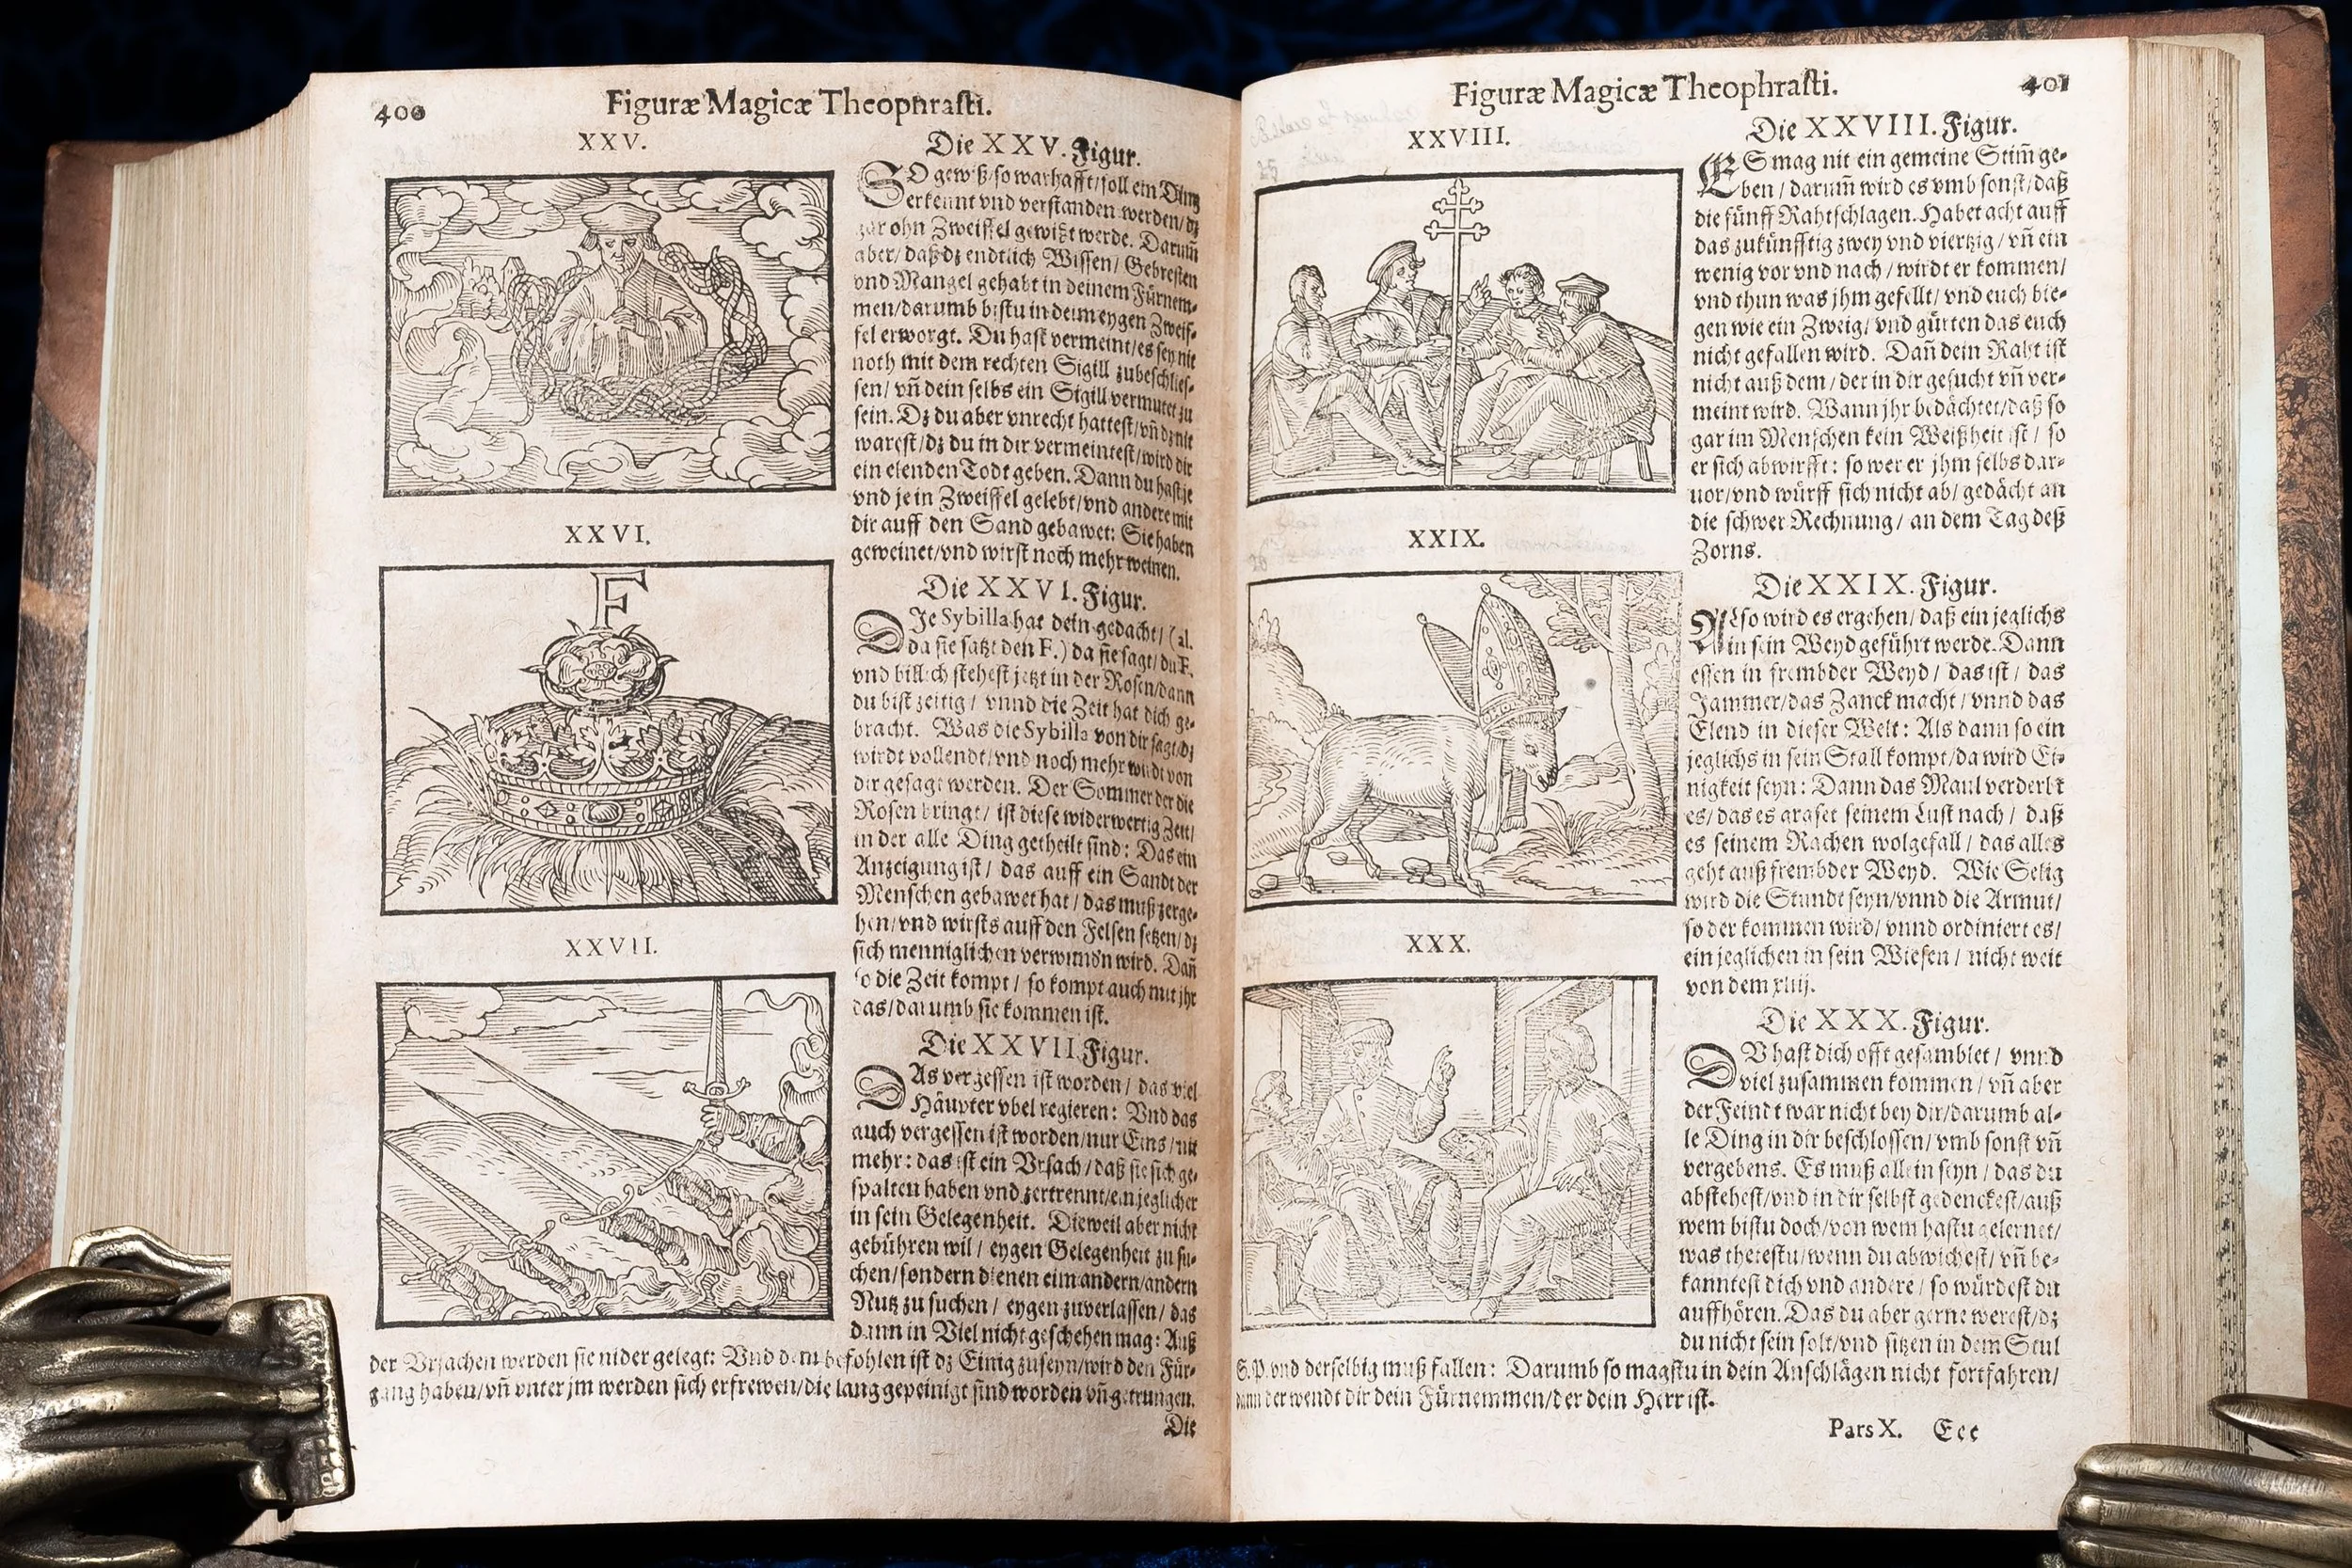 400
Figuræ Magicæ Theophrasti.
XXV.
Die XXV. Figur.
SO gewiß/so warhafft/soll ein Ding
erkennt vnd verstanden werden/dz
gar ohn Zweiffel gewißt werde. Darum̃
aber/daß dz endtlich Wissen/Gebresten
vnd Mangel gehabt in deinem Fürnem-
men/darumb bistu in deim eygen Zweif-
fel erworgt. Du hast vermeint/es sey nit
noth mit dem rechten Sigill zubeschlies-
sen/vñ dein selbs ein Sigill vermutet zu
sein. Dz du aber vnrecht hattest/vñ dz nit
warest/dz du in dir vermeintest/wird dir
ein elenden Todt geben. Dann du hast je
vnd je in Zweiffel gelebt/vnd andere mit
dir auff den Sand gebawet: Sie haben
geweinet/vnd wirst noch mehr weinen.
XXVI.
F
Die XXVI. Figur.
DJe Sybilla hat dein gedacht/(al.
da sie satzt den F.) da sie sagt/du F.
vnd billich stehest jetzt in der Rosen/dann
du bist zeitig/vnnd die Zeit hat dich ge-
bracht. Was die Sybilla von dir sagt/dz
wirdt vollendt/vnd noch mehr wirdt von
dir gesagt werden. Der Sommer der die
Rosen bringt/ist diese widerwertig Zeit/
in der alle Ding getheilt sind: Das ein
Anzeigung ist/das auff ein Sandt der
Menschen gebawet hat/das muß zerge-
hen/vnd wirsts auff den Felsen setzen/dz
sich menniglichen verwundn wird. Dañ
so die Zeit kompt/so kompt auch mit jhr
das/darumb sie kommen ist.
XXVII.
Die XXVII. Figur.
DAs vergessen ist worden/das viel
Häupter vbel regieren: Vnd das
auch vergessen ist worden/nur Eins/nit
mehr: das ist ein Vrsach/daß sie sich ge-
spalten haben vnd zertrennt/ein jeglicher
in sein Gelegenheit. Dieweil aber nicht
gebühren wil/eygen Gelegenheit zu su-
chen/sondern dienen eim andern/andern
Nutz zu suchen/eygen zuverlassen/das
dann in Viel nicht geschehen mag: Auß
der Vrsachen werden sie nider gelegt: Vnd dem befohlen ist dz Einig zuseyn/wird den Für-
gang haben/vñ vnter jm werden sich erfrewen/die lang gepeinigt sind worden vñ getrungen.
Die
401
Figuræ Magicæ Theophrasti.
XXVIII.
Die XXVIII. Figur.
ES mag nit ein gemeine Stim̃ ge-
ben/darum̃ wird es vmb sonst/daß
die fünff Rahtschlagen. Habet acht auff
das zukünfftig zwey vnd viertzig/vñ ein
wenig vor vnd nach/wirdt er kommen/
vnd thun was jhm gefellt/vnd euch bie-
gen wie ein Zweig/vnd gürten das euch
nicht gefallen wird. Dañ dein Raht ist
nicht auß dem/der in dir gesucht vñ ver-
meint wird. Wann jhr bedächtet/daß so
gar im Menschen kein Weißheit ist/so
er sich abwirfft: so wer er jhm selbs dar-
uor/vnd würff sich nicht ab/gedächt an
die schwer Rechnung/an dem Tag deß
Zorns.
XXIX.
Die XXIX. Figur.
ALso wird es ergehen/daß ein jeglichs
in sein Weyd geführt werde. Dann
essen in frembder Weyd/das ist/das
Jammer/das Zanck macht/vnnd das
Elend in dieser Welt: Als dann so ein
jeglichs in sein Stall kompt/da wird Ei-
nigkeit seyn: Dann das Maul verderbt
es/das es graset seinem Lust nach/daß
es seinem Rachen wolgefall/das alles
geht auß frembder Weyd. Wie Selig
wird die Stundt seyn/vnnd die Armut/
so der kommen wird/vnnd ordiniert es/
ein jeglichen in sein Wiesen/nicht weit
von dem xliij.
XXX.
Die XXX. Figur.
DV hast dich offt gesamblet/vnnd
viel zusammen kommen/vñ aber
der Feindt war nicht bey dir/darumb al-
le Ding in dir beschlossen/vmb sonst vñ
vergebens. Es muß allein seyn/das du
abstehest/vnd in dir selbst gedenckest/auß
wem bistu doch/von wem hastu gelernet/
was thetestu/wenn du abwichest/vñ be-
kanntest dich vnd andere/so würdest du
auffhören. Das du aber gerne werest/dz
du nicht sein solt/vnd sitzen in dem Stul
S.P. vnd derselbig muß fallen: Darumb so magstu in dein Anschlägen nicht fortfahren/
dann der wendt dir dein Fürnemmen/der dein Herr ist.
Pars X. Eee